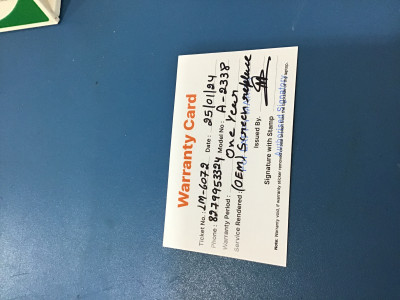 Warranty Card
Ticket No.: LM-6072 Date: 25/01/24
Phone: 8279953324 Model No: A-2338
Warranty Period: One Year
Service Rendered: (OEM) Screen replace
Issued By.
Authorised Signatory
Signature with Stamp
Note: Warranty void, if warranty sticker